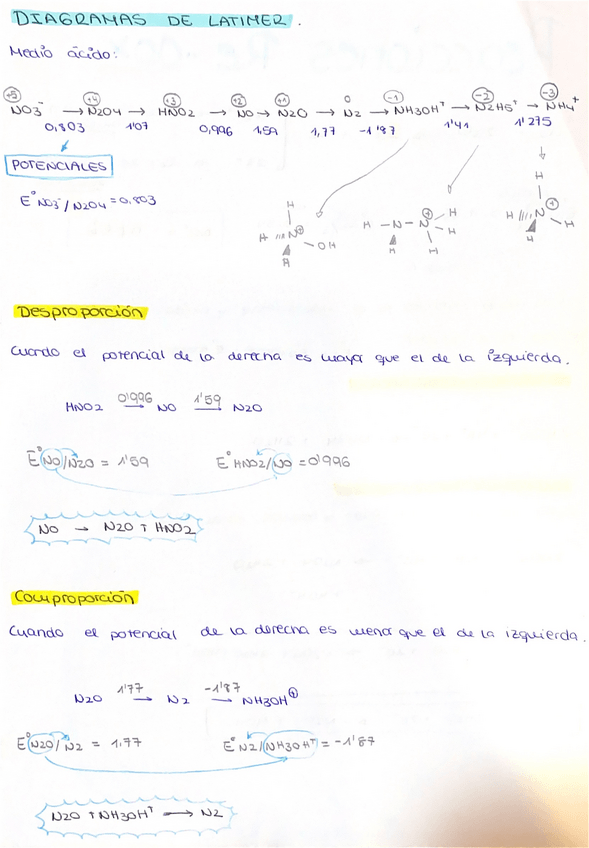 DIAGRAMAS DE LATIMER.
Medio ácido:
+5 +4 +3 +2 +1 0 -1 -2 -3
NO3⁻ → N2O4 → HNO2 → NO → N2O → N2 → NH3OH⁺ → N2H5⁺ → NH4⁺
0,803 1'07 0,996 1,59 1,77 -1'87 1'41 1'275
POTENCIALES
E° NO3⁻/N2O4 = 0.803
H H N⊕ OH H
H N N⊕ H H H H
H H N⊕ H H
Desproporción
Cuando el potencial de la derecha es mayor que el de la izquierda.
HNO2 0'996→ NO 1'59→ N2O
E° NO/N2O = 1'59 E° HNO2/NO = 0'996
NO → N2O + HNO2
Comproporción
Cuando el potencial de la derecha es menor que el de la izquierda.
N2O 1'77→ N2 -1'87→ NH3OH⊕
E° N2O/N2 = 1.77 E° N2/NH3OH⁺ = -1'87
N2O + NH3OH⁺ → N2